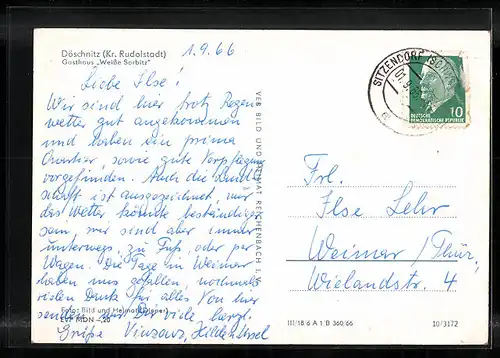 Döschnitz (Kr. Rudolstadt)
Gasthaus „Weiße Sorbitz"
1.9.66
Liebe Ilse!
Wir sind hier trotz Regen-
wetter gut angekommen
und haben ein prima
Quartier, sowie gute Verpflegung
vorgefunden. Auch die Land-
schaft ist ausgezeichnet, nur
das Wetter könnte beständiger
sein, wir sind aber immer
unterwegs, zu Fuß, oder per
Wagen. Die Tage in Weimar
haben uns gefallen, nochmals
vielen Dank für alles. Von hier
senden wir Dir viele herzl.
Grüße
Foto: Bild und Heimat
EVP MDN -,20
VEB BILD UND HEIMAT REICHENBACH I. V.
SITZENDORF
10
DEUTSCHE
DEMOKRATISCHE REPUBLIK
Frl.
Ilse Lehr
Weimar/Thür.
Wielandstr. 4
III/18/6 A 1 B 360/66
10/3172